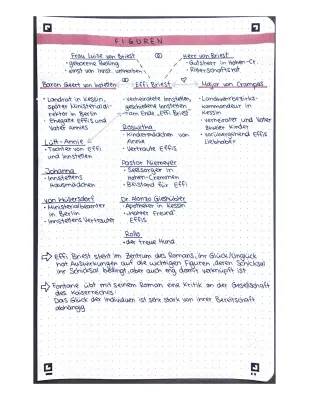 FIGUREN
Frau Luise von Briest
- geborene Belling
- einst von Innst. umworben
Herr von Briest
- Gutsherr in Hohen-Cr.
- Ritterschaftsrat
Baron Geert von Instetten
- Landrat in Kessin,
später Ministerial-
rektor in Berlin
- Ehegatte Effis und
Vater Annies
Effi Briest
- verheiratete Innstetten,
geschiedene Innstetten
- am Ende „Effi Briest"
Major von Crampas
- Landwehrbezirks-
kommandeur in
Kessin
- verheiratet und Vater
zweier Kinder
- vorübergehend Effis
Liebhaber
Lütt-Annie
- Tochter von Effi
und Innstetten
Roswitha
- Kindermädchen von
Annie
- Vertraute Effis
Johanna
- Innstettens
Hausmädchen
Pastor Niemeyer
- Seelsorger in
Hohen-Cremmen
- Beistand für Effi
von Wüllersdorf
- Ministerialbeamter
in Berlin
- Innstettens Vertrauter
Dr. Alonzo Gieshübler
- Apotheker in Kessin
- „bester Freund"
Effis
Rollo
- der treue Hund
Effi Briest steht im Zentrum des Romans, ihr Glück/Unglück
hat Auswirkungen auf die wichtigen Figuren, deren Schicksal
ihr Schicksal bedingt, aber auch eng damit verknüpft ist
Fontane übt mit seinem Roman eine Kritik an der Gesellschaft
des Kaiserreiches:
Das Glück der Individuen ist sehr stark von ihrer Bereitschaft
abhängig